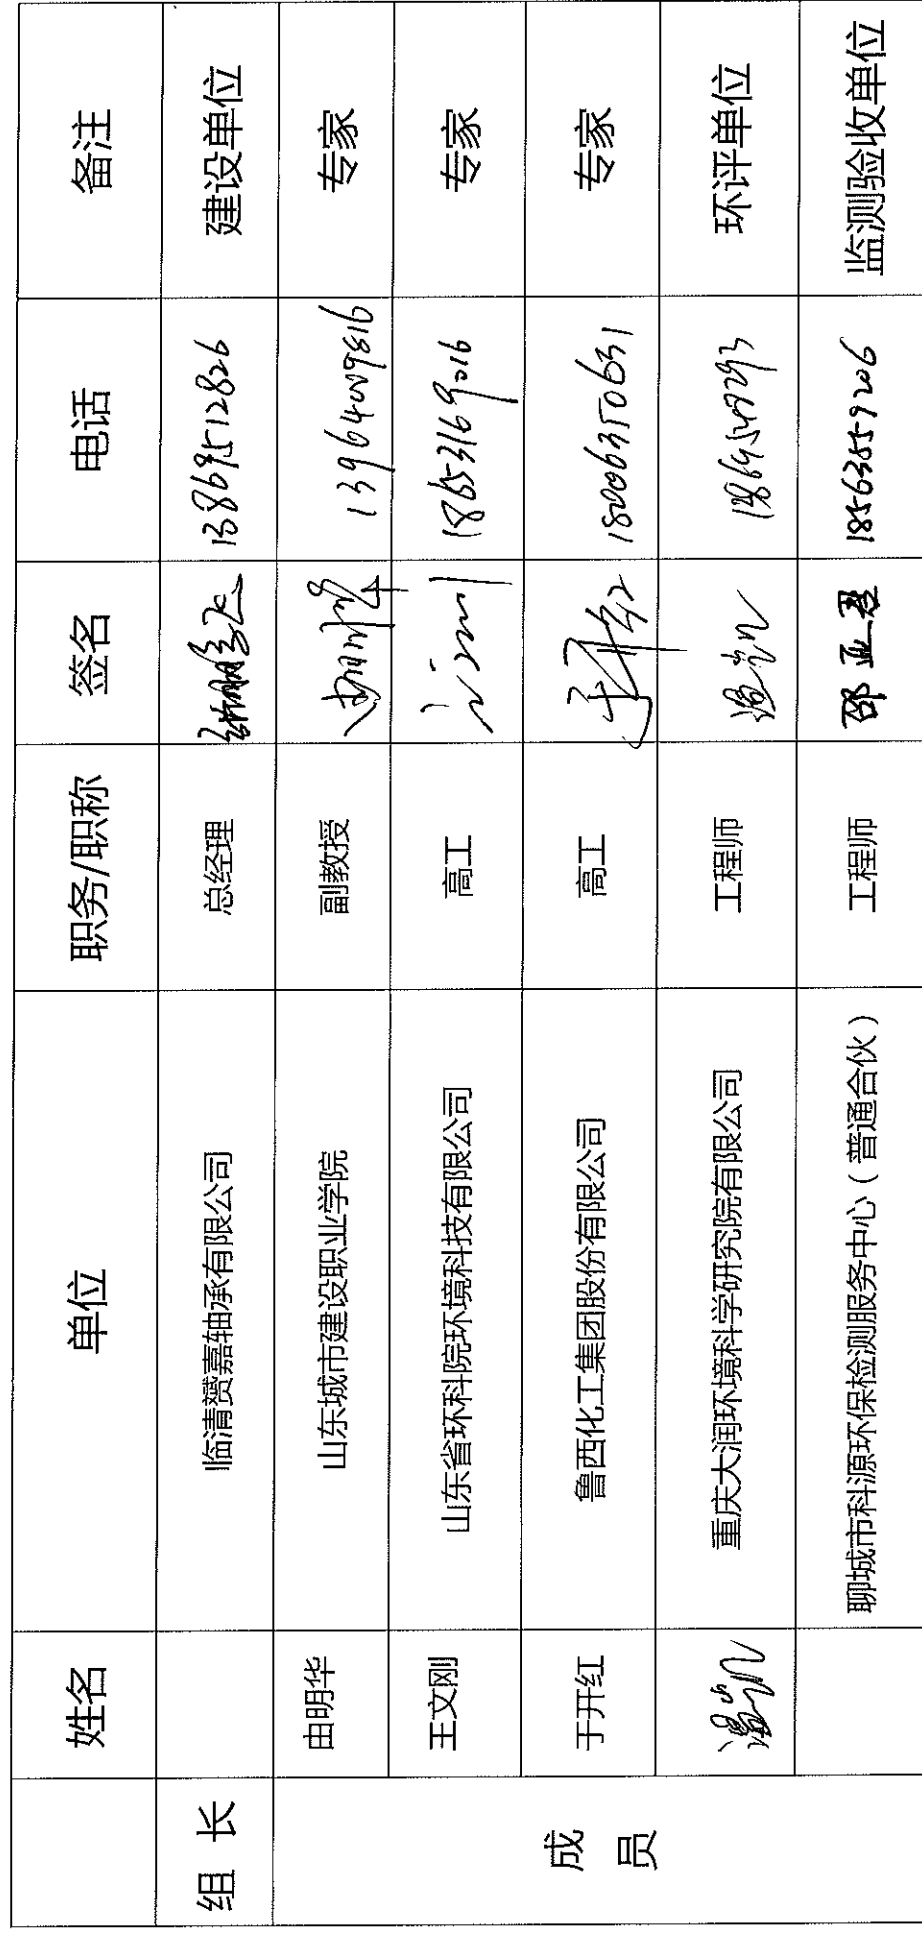 姓名 单位 职务/职称 签名 电话 备注
组长 临清赟嘉轴承有限公司 总经理 13869512826 建设单位
成员
由明华 山东城市建设职业学院 副教授 由明华 13964009816 专家
王文刚 山东省环科院环境科技有限公司 高工 18653169016 专家
于开红 鲁西化工集团股份有限公司 高工 于开红 18006350631 专家
重庆大润环境科学研究院有限公司 工程师 环评单位
聊城市科源环保检测服务中心（普通合伙） 工程师 邵亚君 18563559206 监测验收单位